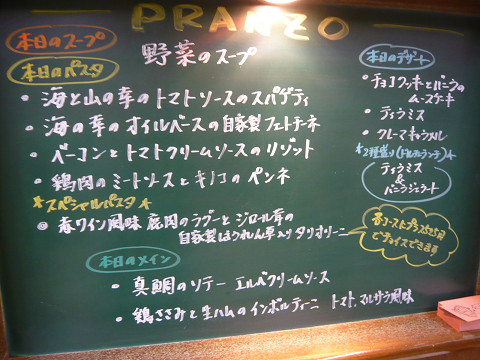 PRANZO
本日のスープ
野菜のスープ
本日のパスタ
・海と山の幸のトマトソースのスパゲティ
・海の幸のオイルベースの自家製フェトチーネ
・ベーコンとトマトクリームソースのリゾット
・鶏肉のミートソースとキノコのペンネ
★スペシャルパスタ★
赤ワイン風味 鹿肉のラグーとジロール茸の
自家製ほうれん草入りタリオリーニ
各コースプラス525円
でチョイスできます
本日のメイン
・真鯛のソテー エルベクリームソース
・鶏ささみと生ハムのインボルティーニ トマト、マルサラ風味
本日のデザート
・チョコクッキーとバニラの
ムースケーキ
・ティラミス
・クレーマキャラメル
★2種盛り(ドルチェランチ)★
ティラミス
&
バニラジェラート